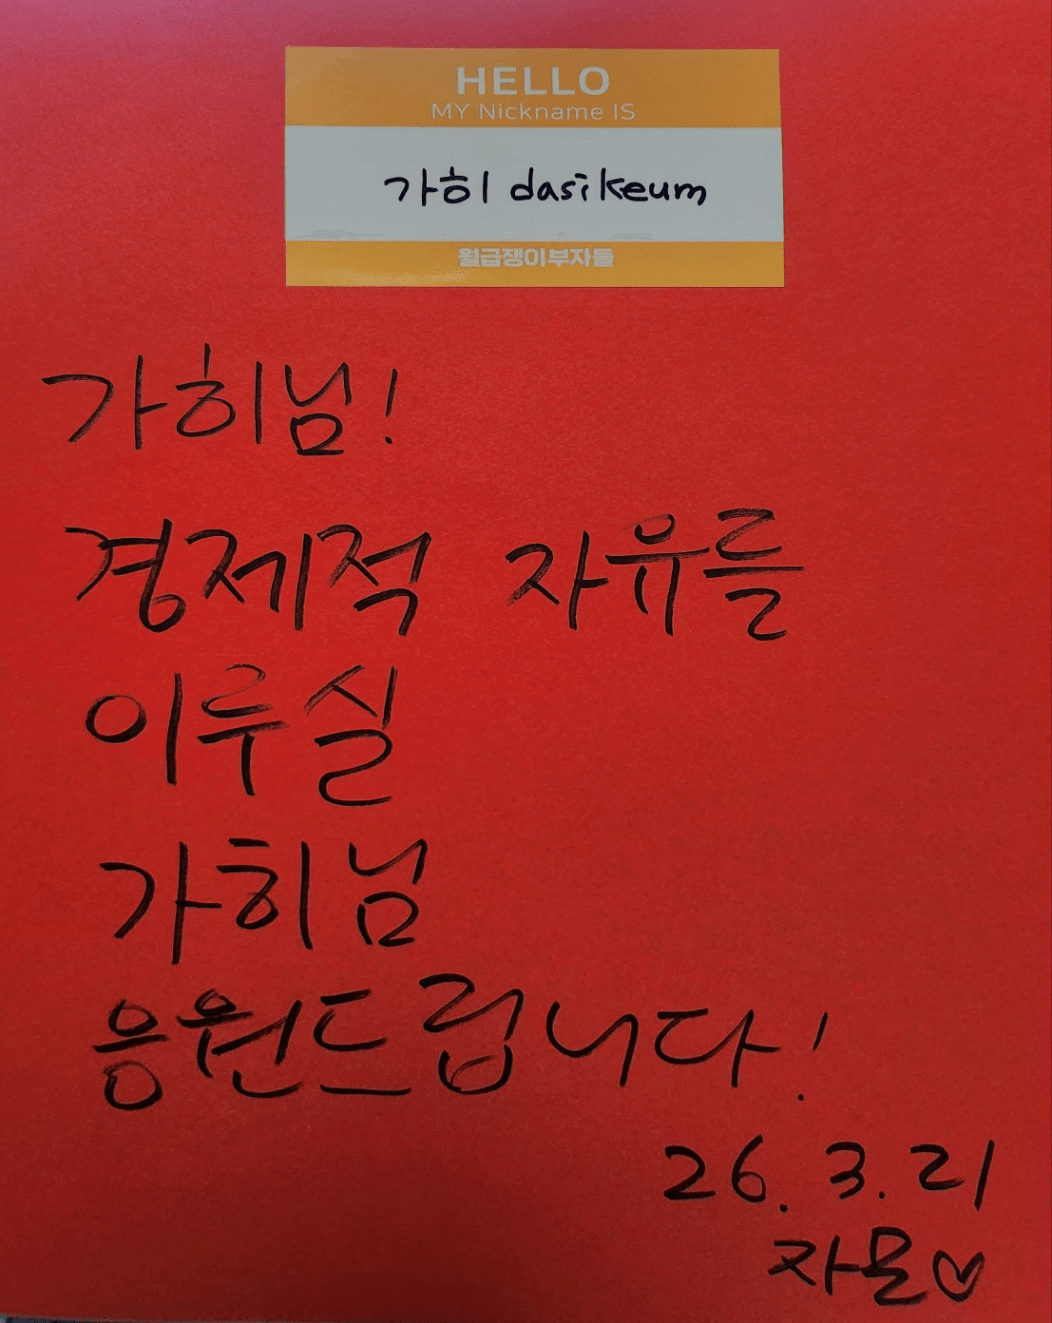 HELLO
MY Nickname IS
가히 dasikeum
월급쟁이부자들
가히님!
경제적 자유를
이루실
가히님
응원드립니다!
26. 3. 21
자몽♡